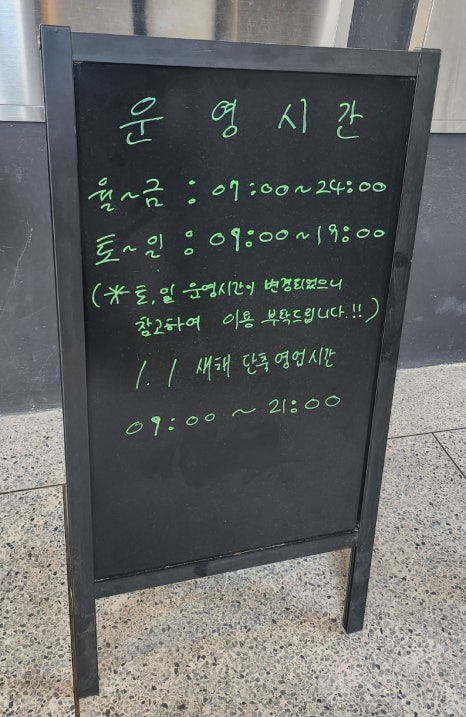 운영시간
월~금 : 07:00~24:00
토~일 : 09:00~19:00
(※토,일 운영시간이 변경되었으니
참고하여 이용 부탁드립니다.!!)
1.1 새해 단축영업시간
09:00 ~ 21:00